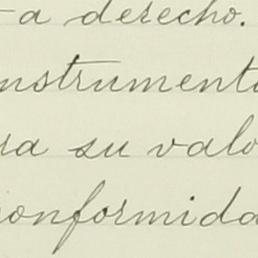 -a derecho.
nstrument
ra su valo
conformida